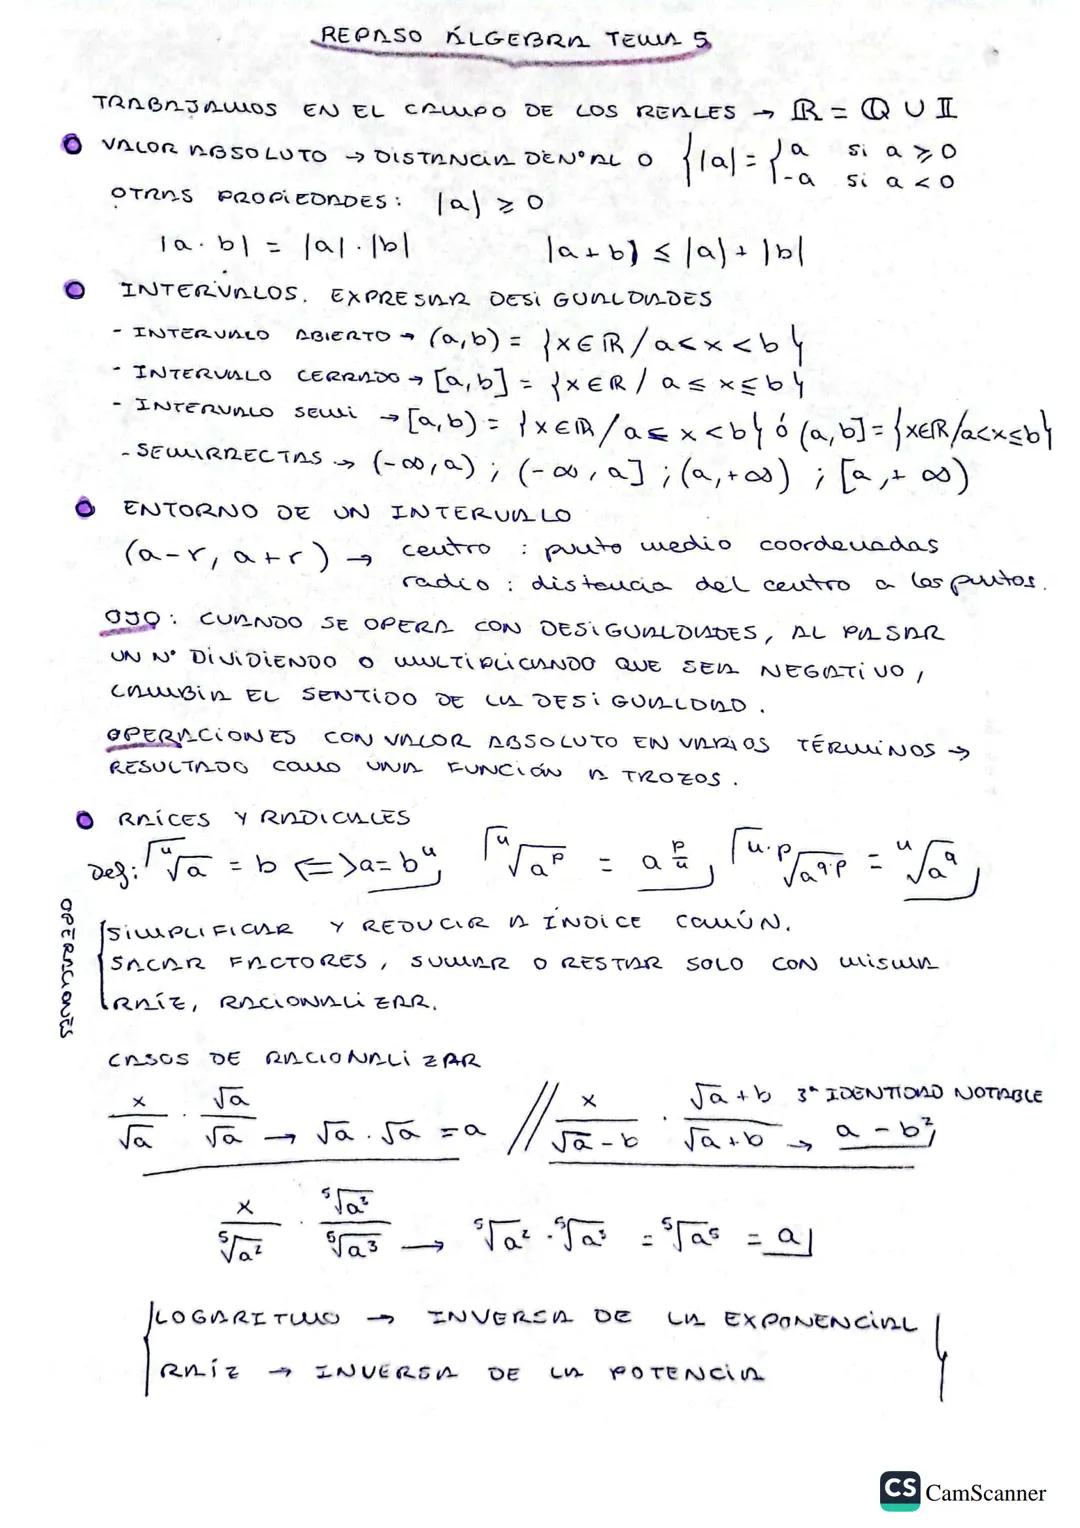 REPASO ÁLGEBRA TEMA 5
TRABAJAMOS EN EL CAMPO DE LOS REALES → ℝ = ℚ ∪ 𝕀
VALOR ABSOLUTO → DISTANCIA DE Nº AL 0 { |a| = { a si a ≥ 0
-a si a < 0
OTRAS PROPIEDADES: |a| ≥ 0
|a · b| = |a| · |b| |a + b| ≤ |a| + |b|
INTERVALOS. EXPRESAR DESIGUALDADES
- INTERVALO ABIERTO → (a, b) = {x ∈ ℝ / a < x < b}
- INTERVALO CERRADO → [a, b] = {x ∈ ℝ / a ≤ x ≤ b}
- INTERVALO SEMI → [a, b) = {x ∈ ℝ / a ≤ x < b} ó (a, b] = {x ∈ ℝ / a < x ≤ b}
- SEMIRRECTAS → (-∞, a) ; (-∞, a] ; (a, +∞) ; [a, +∞)
ENTORNO DE UN INTERVALO
(a-r, a+r) → centro : punto medio coordenadas
radio : distancia del centro a los puntos.
OJO: CUANDO SE OPERA CON DESIGUALDADES, AL PASAR
UN Nº DIVIDIENDO O MULTIPLICANDO QUE SEA NEGATIVO,
CAMBIA EL SENTIDO DE LA DESIGUALDAD.
OPERACIONES CON VALOR ABSOLUTO EN VARIOS TÉRMINOS →
RESULTADO COMO UNA FUNCIÓN A TROZOS.
RAÍCES Y RADICALES
Def: ⁿ√a = b ⟺ a = bⁿ, ⁿ√aᵖ = a^(p/n), ⁿ·ᵖ√a^(q·p) = ⁿ√a^q
OPERACIONES
SIMPLIFICAR Y REDUCIR A ÍNDICE COMÚN.
SACAR FACTORES, SUMAR O RESTAR SOLO CON MISMA
RAÍZ, RACIONALIZAR.
CASOS DE RACIONALIZAR
x/√a · √a/√a → √a · √a = a // x/(√a - b) · (√a + b)/(√a + b) → 3ª IDENTIDAD NOTABLE a - b²
x/⁵√a² · ⁵√a³/⁵√a³ → ⁵√a² · ⁵√a³ = ⁵√a⁵ = a
LOGARITMO → INVERSA DE LA EXPONENCIAL
RAÍZ → INVERSA DE LA POTENCIA
CS CamScanner